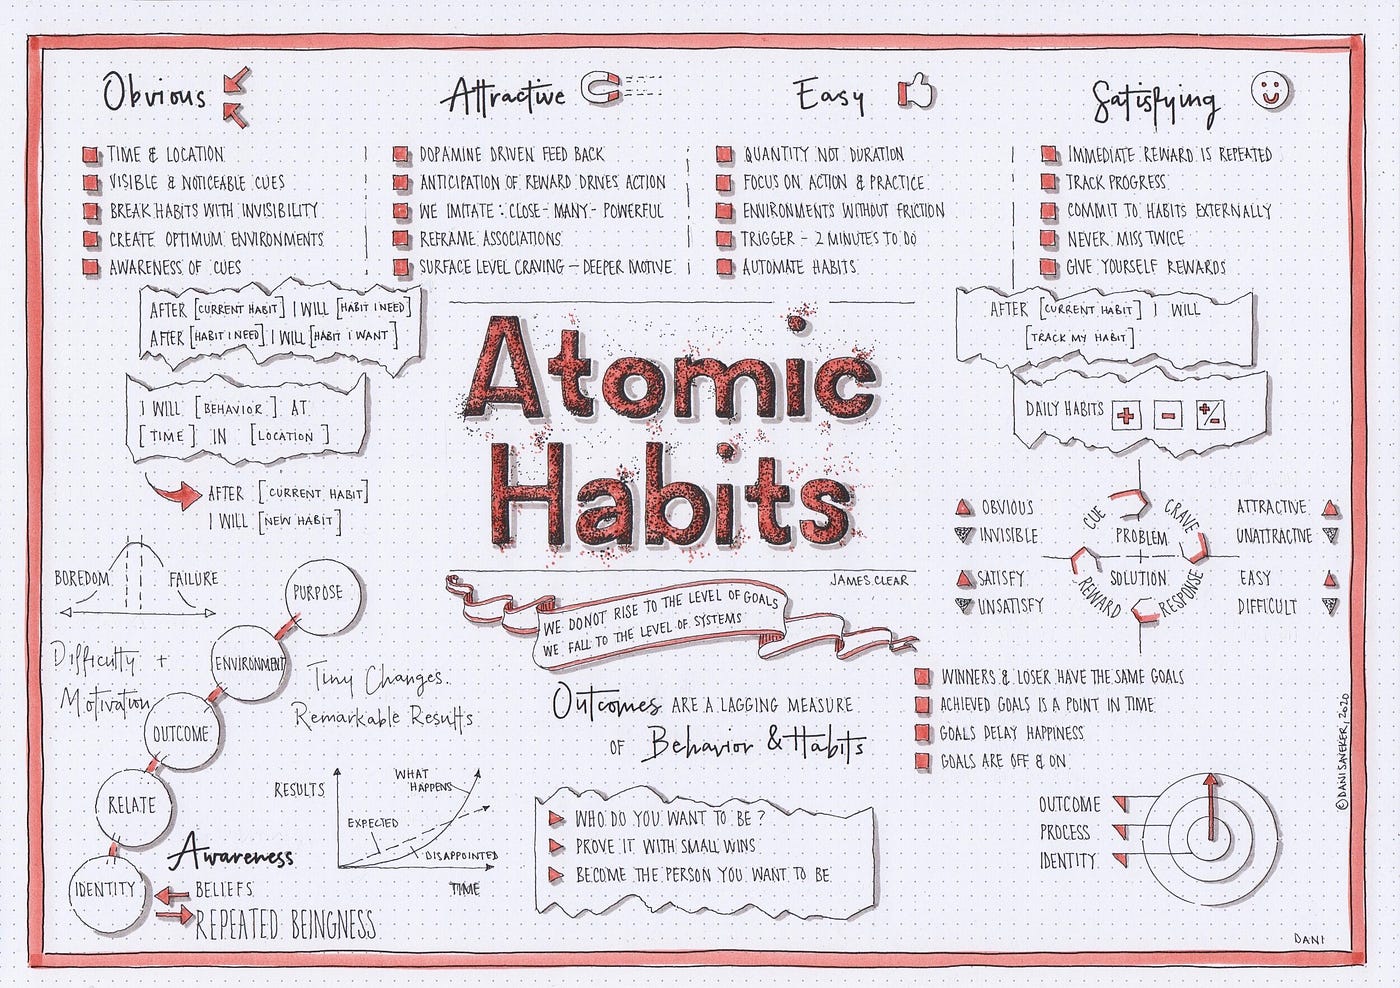 Obvious
TIME & LOCATION
VISIBLE & NOTICEABLE CUES
BREAK HABITS WITH INVISIBILITY
CREATE OPTIMUM ENVIRONMENTS
AWARENESS OF CUES
Attractive
DOPAMINE DRIVEN FEED BACK
ANTICIPATION OF REWARD DRIVES ACTION
WE IMITATE : CLOSE - MANY - POWERFUL
REFRAME ASSOCIATIONS
SURFACE LEVEL CRAVING - DEEPER MOTIVE
Easy
QUANTITY NOT DURATION
FOCUS ON ACTION & PRACTICE
ENVIRONMENTS WITHOUT FRICTION
TRIGGER - 2 MINUTES TO DO
AUTOMATE HABITS
Satisfying
IMMEDIATE REWARD IS REPEATED
TRACK PROGRESS
COMMIT TO HABITS EXTERNALLY
NEVER MISS TWICE
GIVE YOURSELF REWARDS
AFTER [CURRENT HABIT] I WILL [HABIT I NEED]
AFTER [HABIT I NEED] I WILL [HABIT I WANT]
I WILL [BEHAVIOR] AT
[TIME] IN [LOCATION]
AFTER [CURRENT HABIT]
I WILL [NEW HABIT]
Atomic
Habits
JAMES CLEAR
WE DO NOT RISE TO THE LEVEL OF GOALS
WE FALL TO THE LEVEL OF SYSTEMS
AFTER [CURRENT HABIT] I WILL
[TRACK MY HABIT]
DAILY HABITS + - +/-
OBVIOUS
INVISIBLE
SATISFY
UNSATISFY
CUE
CRAVE
PROBLEM
SOLUTION
REWARD
RESPONSE
ATTRACTIVE
UNATTRACTIVE
EASY
DIFFICULT
BOREDOM
FAILURE
Difficulty +
Motivation
PURPOSE
ENVIRONMENT
OUTCOME
RELATE
IDENTITY
Tiny Changes..
Remarkable Results
Awareness
BELIEFS
REPEATED BEINGNESS
RESULTS
WHAT
HAPPENS
EXPECTED
DISAPPOINTED
TIME
Outcomes ARE A LAGGING MEASURE
OF Behavior & Habits
WHO DO YOU WANT TO BE ?
PROVE IT WITH SMALL WINS
BECOME THE PERSON YOU WANT TO BE
WINNERS & LOSER HAVE THE SAME GOALS
ACHIEVED GOALS IS A POINT IN TIME
GOALS DELAY HAPPINESS
GOALS ARE OFF & ON
OUTCOME
PROCESS
IDENTITY
© DANI SAVEKER, 2020
DANI